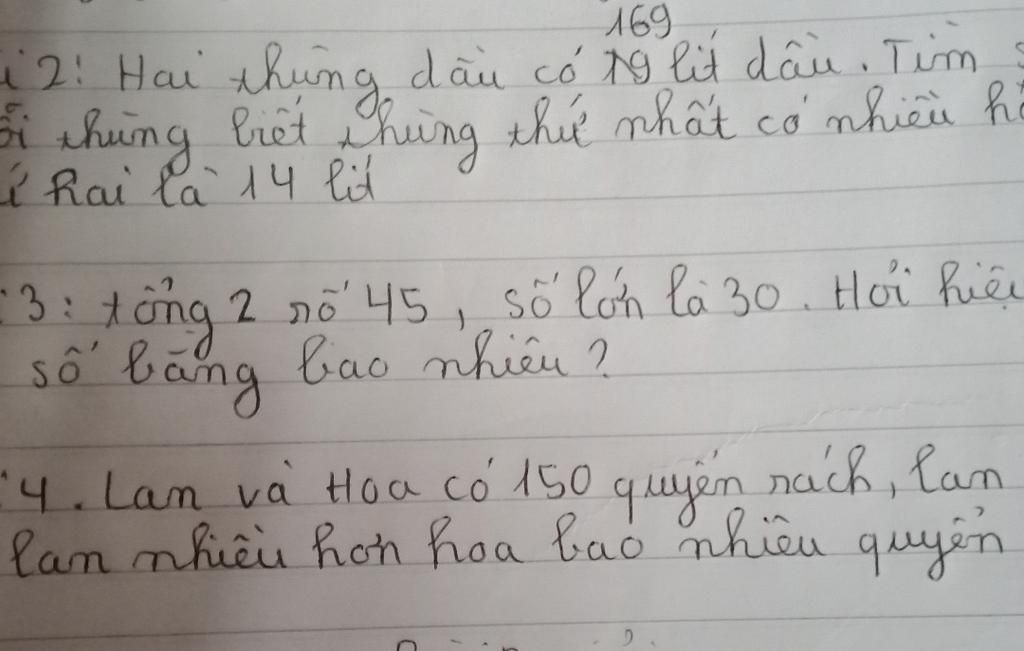 169
2: Hai thùng dầu có 19 lít dầu. Tìm
thùng biết thùng thứ nhất có nhiều
hai là 14 lít
3: tổng 2 số 45, số lớn là 30. Hỏi hiệu
số bằng bao nhiêu?
4. Lan và Hoa có 150 quyển sách, lan
lan nhiều hơn hoa bao nhiêu quyển